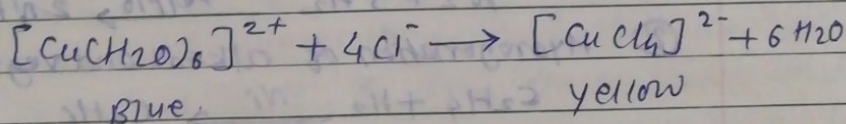 [Cu(H2O)6]²⁺ + 4Cl⁻ → [CuCl4]²⁻ + 6H2O
Blue. yellow